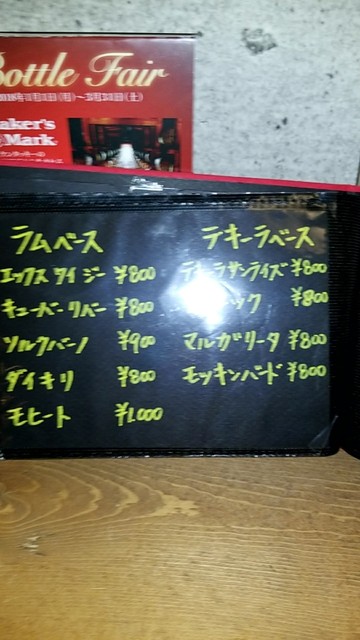 Bottle Fair
2018年1月1日(月)〜3月31日(土)
aker's
Mark
ラムベース
エックス ワイ ジー ¥800
キューバー リバー ¥800
ソルクバーノ ¥900
ダイキリ ¥800
モヒート ¥1,000
テキーラベース
テキーラサンライズ ¥800
ック ¥800
マルガリータ ¥800
モッキンバード ¥800